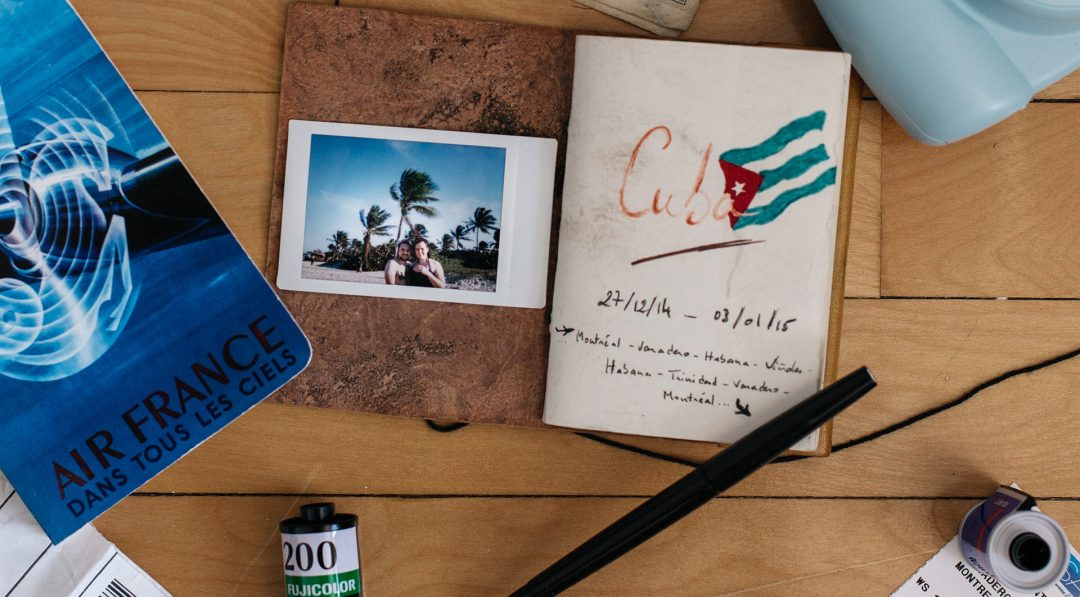 AIR FRANCE
DANS TOUS LES CIELS
Cuba
27/12/14 - 03/01/15
Montréal - Varadero - Habana - Viñales -
Habana - Trinidad - Varadero -
Montréal...
200
FUJICOLOR
MONTRE
WS